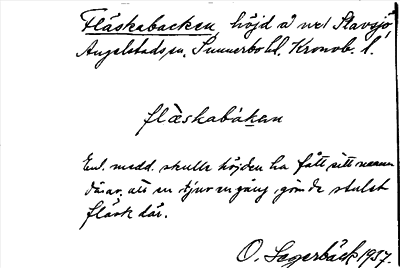 Fläskabacken, höjd å ned Slavsjö,
Angelstads sn. Sunnerbo hd. Kronob. l.
flæskabákan
Enl. medd. skulle höjden ha fått sitt namn
därav, att en tjuv en gång gömde stulet
fläsk där.
O. Sagerbäck 1937.